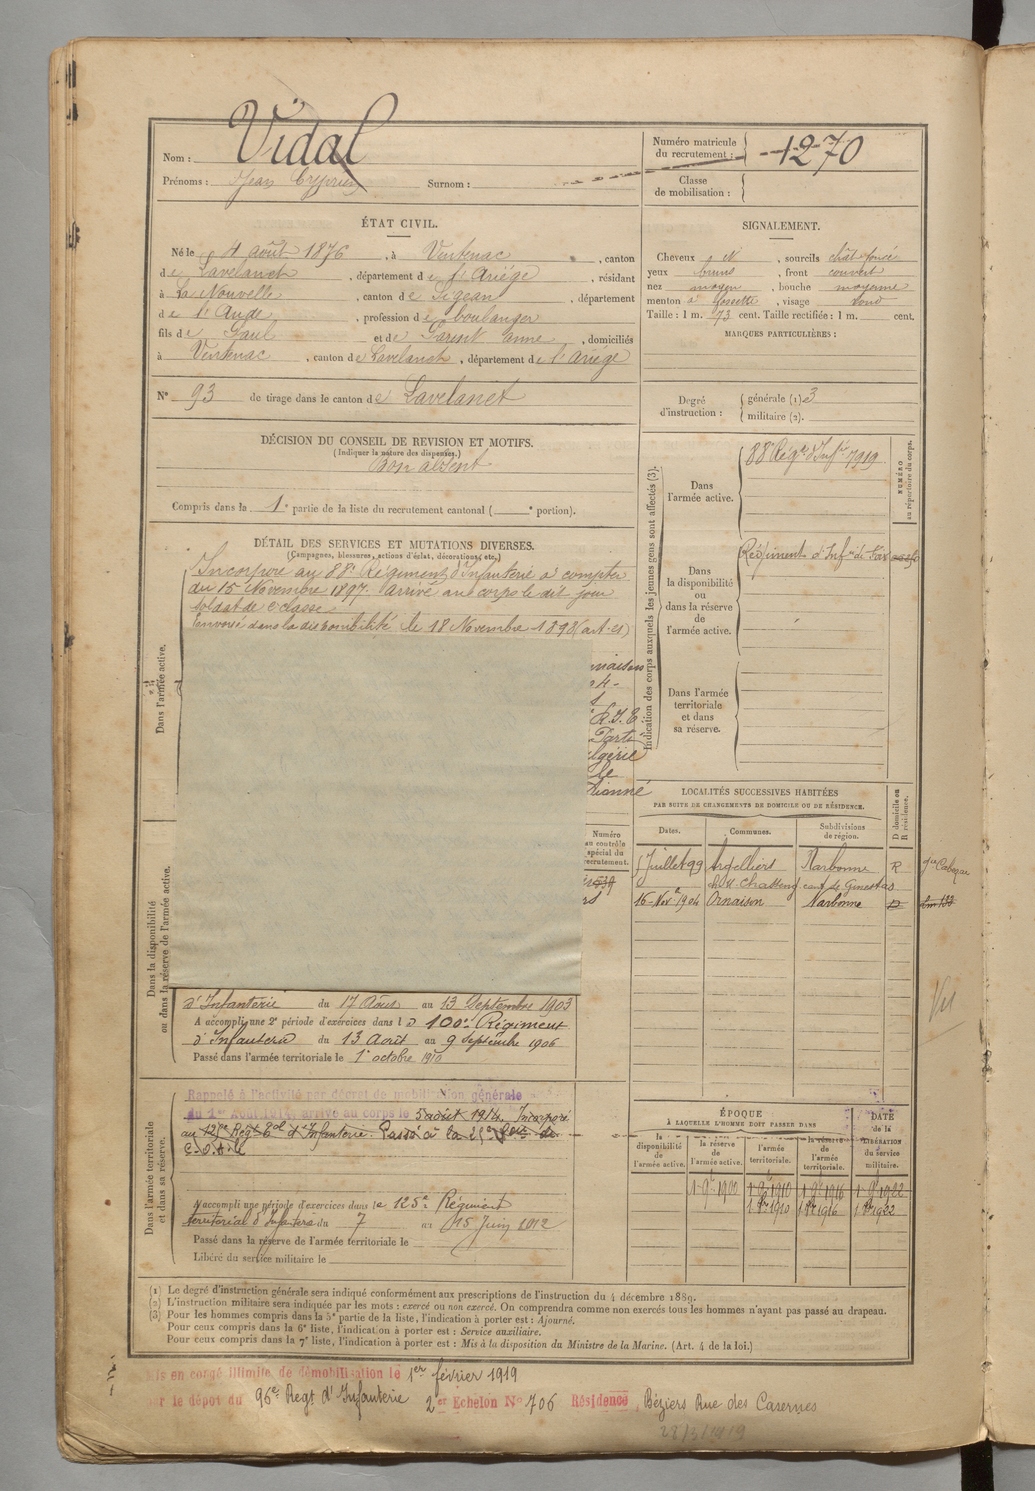 Nom : Vidal
Prénoms : Jean Cyprien Surnom :
Numéro matricule du recrutement : 1270
Classe de mobilisation :
ÉTAT CIVIL.
Né le 4 août 1876, à Ventenac, canton
de Lavelanet, département de l'Ariége, résidant
à La Nouvelle, canton de Sigean, département
de l'Aude, profession de boulanger
fils de Paul et de Anne, domiciliés
à Ventenac, canton de Lavelanet, département de l'Ariège
N° 93 de tirage dans le canton de Lavelanet
SIGNALEMENT.
Cheveux N, sourcils chât foncé
yeux bruns, front couvert
nez moyen, bouche moyenne
menton à fossette, visage rond
Taille : 1 m. 73 cent. Taille rectifiée : 1 m. cent.
MARQUES PARTICULIÈRES :
Degré d'instruction : générale (1) 3
militaire (2).
DÉCISION DU CONSEIL DE REVISION ET MOTIFS.
(Indiquer la nature des dispenses.)
Bon absent
Compris dans la 1e partie de la liste du recrutement cantonal ( e portion).
DÉTAIL DES SERVICES ET MUTATIONS DIVERSES.
(Campagnes, blessures, actions d'éclat, décorations, etc.)
Dans l'armée active.
Incorporé au 88e Régiment d'Infanterie à compter
du 15 Novembre 1897. arrivé au corps le dit jour
soldat de 2e classe
Envoyé dans la disponibilité le 18 Novembre 1898 (art. 21)
R.I.E.
Dans la disponibilité ou dans la réserve de l'armée active.
Numéro au contrôle spécial du recrutement.
d'Infanterie du 17 Août au 13 Septembre 1903
A accompli une 2e période d'exercices dans l e 100e Régiment
d'Infanterie du 13 Août au 9 Septembre 1906
Passé dans l'armée territoriale le 1er octobre 1910
Dans l'armée territoriale et dans sa réserve.
Rappelé à l'activité par décret de mobilisation générale
du 1er Août 1914, arrivé au corps le 5 août 1914. Incorporé
au 125e Régt d'Infanterie. Passé à la
A accompli une période d'exercices dans le 125e Régiment
territorial d'Infanterie du 7 au 15 Juin 1912
Passé dans la réserve de l'armée territoriale le
Libéré du service militaire le
Indication des corps auxquels les jeunes gens sont affectés (3).
NUMÉRO au répertoire du corps.
Dans l'armée active.
88e Régt d'Infie 7919
Dans la disponibilité ou dans la réserve de l'armée active.
Régiment d'Infie de Foix
Dans l'armée territoriale et dans sa réserve.
LOCALITÉS SUCCESSIVES HABITÉES
PAR SUITE DE CHANGEMENTS DE DOMICILE OU DE RÉSIDENCE.
Dates. Communes. Subdivisions de région. D domicile ou R résidence.
Juillet 99 Argelliers Narbonne R
cant de Ginestas
16 Nov. 1904 Ornaison Narbonne D
ÉPOQUE
À LAQUELLE L'HOMME DOIT PASSER DANS
la disponibilité de l'armée active. la réserve de l'armée active. l'armée territoriale. la réserve de l'armée territoriale.
DATE de la LIBÉRATION du service militaire.
1 9bre 1900 1 9bre 1910 1 9bre 1916 1 9bre 1922
1 8bre 1910 1 8bre 1916 1 8bre 1922
(1) Le degré d'instruction générale sera indiqué conformément aux prescriptions de l'instruction du 4 décembre 1889.
(2) L'instruction militaire sera indiquée par les mots : exercé ou non exercé. On comprendra comme non exercés tous les hommes n'ayant pas passé au drapeau.
(3) Pour les hommes compris dans la 5e partie de la liste, l'indication à porter est : Ajourné.
Pour ceux compris dans la 6e liste, l'indication à porter est : Service auxiliaire.
Pour ceux compris dans la 7e liste, l'indication à porter est : Mis à la disposition du Ministre de la Marine. (Art. 4 de la loi.)
Mis en congé illimité de démobilisation le 1er février 1919
par le dépôt du 96e Regt d'Infanterie 2er Echelon N° 706 Résidence, Béziers Rue des Casernes
28/3/1919